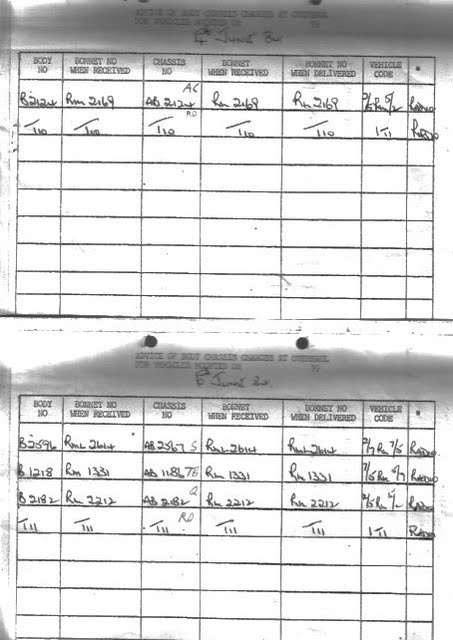 ADVICE OF BODY CHASSIS CHANGES AT OVERHAUL
FOR VEHICLES WORKED ON 19
JUNE 80
BODY NO BONNET NO WHEN RECEIVED CHASSIS NO BONNET WHEN RECEIVED BONNET NO WHEN DELIVERED VEHICLE CODE *
B2124 Rm 2169 AB 2124 AC Rm 2169 Rm 2169 2/5 Rm 5/2 RADIO
T110 T110 T110 RD T110 T110 1T1 RADIO
ADVICE OF BODY CHASSIS CHANGES AT OVERHAUL
FOR VEHICLES WORKED ON 19
JUNE 80.
BODY NO BONNET NO WHEN RECEIVED CHASSIS NO BONNET WHEN RECEIVED BONNET NO WHEN DELIVERED VEHICLE CODE *
B2596 RmL 2614 AB 2567 S RmL 2614 RmL 2614 2/7 Rm 7/5 RADIO
B 1218 Rm 1331 AB 1186 TE Rm 1331 Rm 1331 RADIO
B 2182 Rm 2212 AB 2182 Q Rm 2212 Rm 2212 RADIO
T111 T111 T111 RD T111 T111 1T1 RADIO